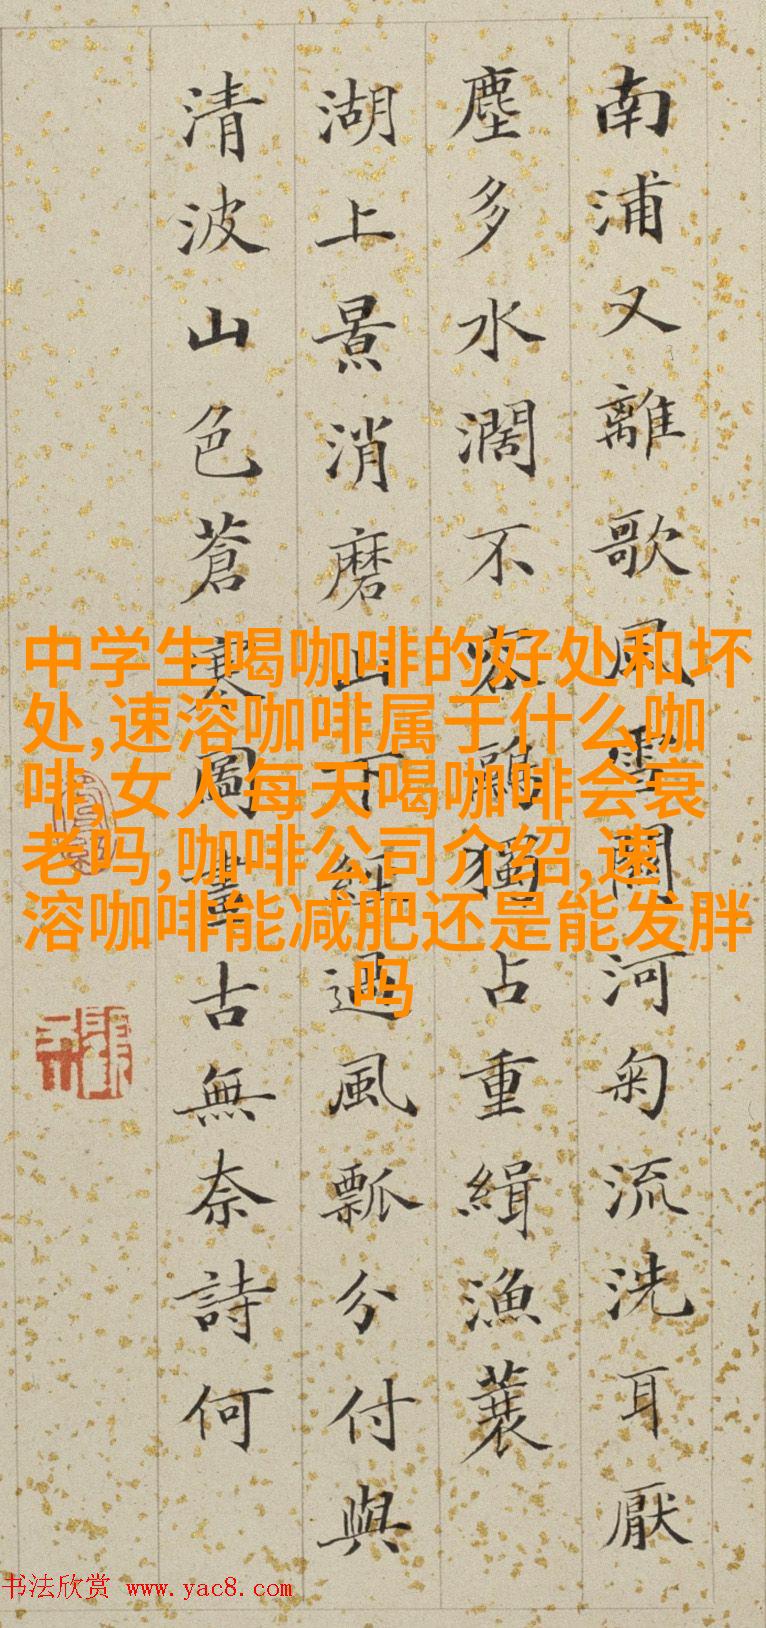 南浦又離歌風雪關河匊流洗耳厭
塵多水濶不容鷗獨占重緝漁蓑
湖上景消磨山下經過風瓢分付與
清波山色蒼寒圖畫古無奈詩何
中学生喝咖啡的好处和坏
处,速溶咖啡属于什么咖
啡,女人每天喝咖啡会衰
老吗,咖啡公司介绍,速
溶咖啡能减肥还是能发胖
吗
书法欣赏 www.yac8.com